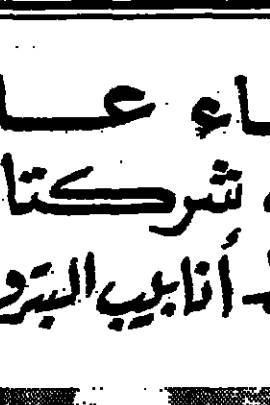 اء عا
شركتا
أنابيب البترو